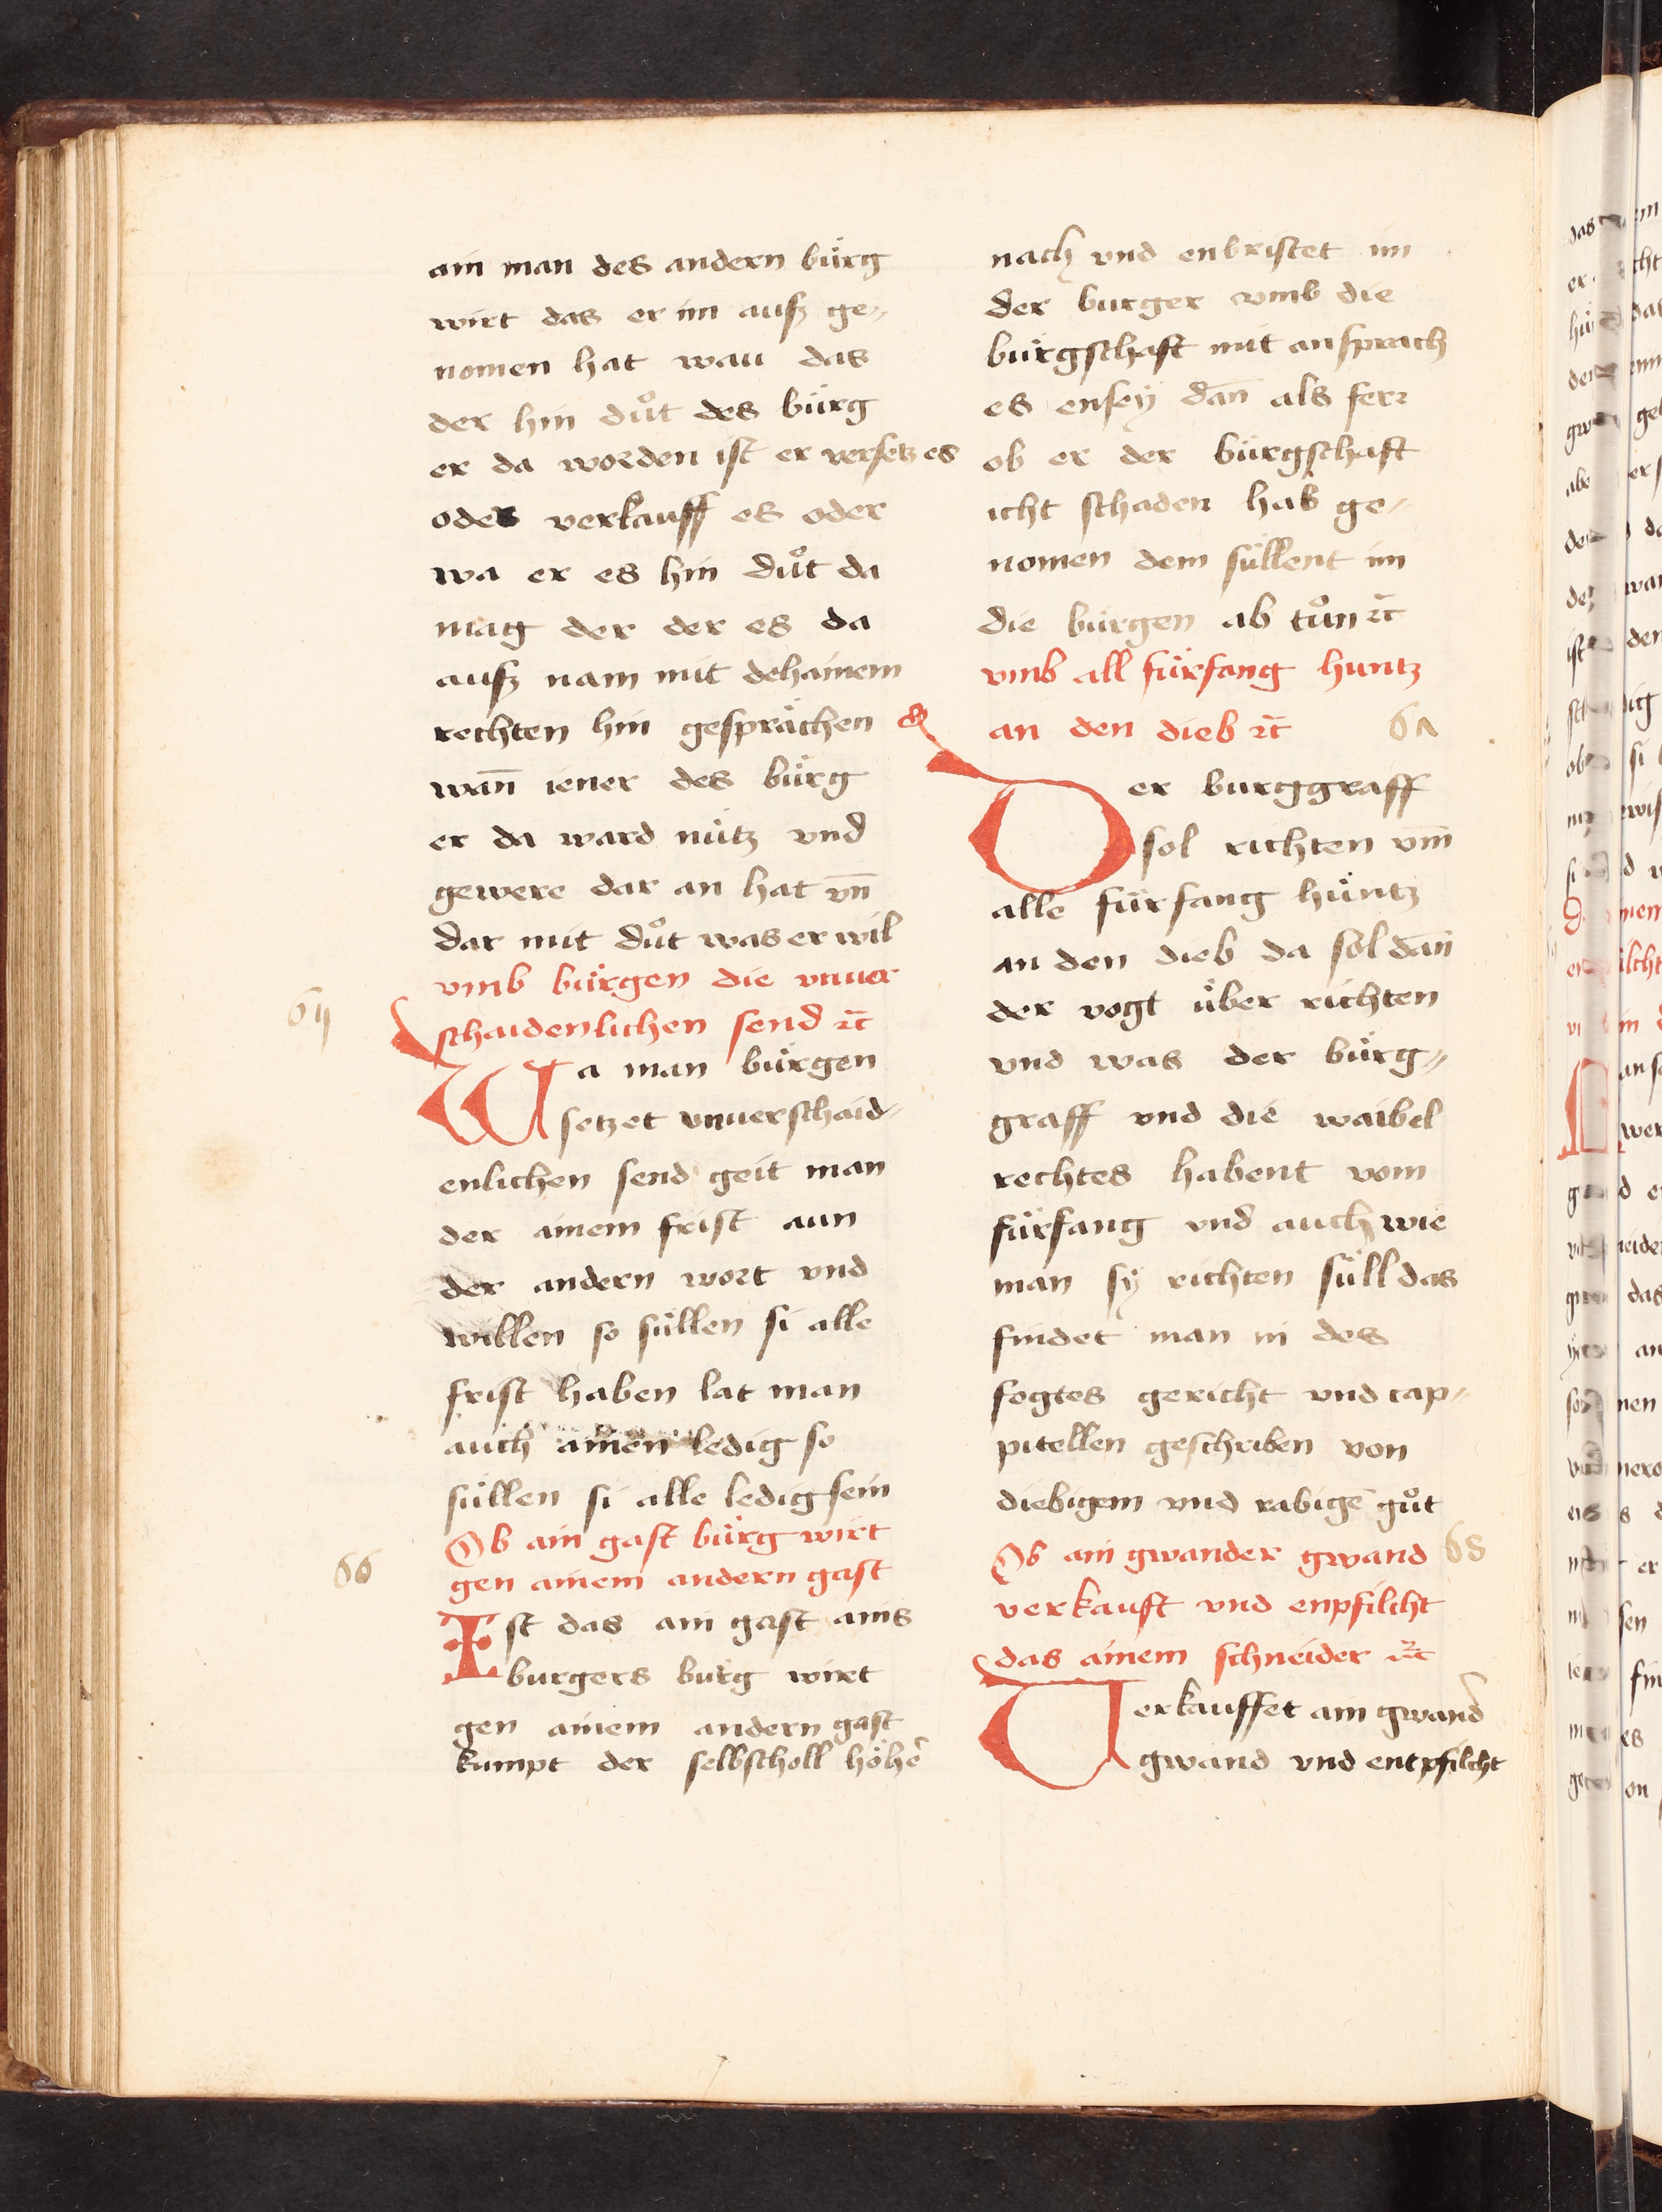 ain man des andern bürg
wirt das er im ausz ge-
nomen hat wau das
der hin důt des bürg
er da worden ist er versetz es
oder verkauff es oder
wa er es hin důt da
mag der der es da
ausz nam mit dehainem
rechten hin gesprächen
wan̄ iener des bürg
er da ward nütz vnd
gewere dar an hat vn̄
dar mit důt was er wil
vmb bürgen die vnuer
schaidenlichen send ꝛc̄
Wa man bürgen
setzet vnuerschaid-
enlichen send geit man
der ainem frist aun
der andern wort vnd
willen so süllen si alle
frist haben lat man
auch ainen ledig so
süllen si alle ledig sein
66
Ob ain gast bürg wirt
gen ainem andern gast
Ist das ain gast ains
burgers bürg wirt
gen ainem andern gast
kumpt der selbscholl höhē
nach vnd enbristet im
der burger vmb die
bürgschaft mit ansprach
es ensey dan̄ als ferr
ob er der bürgschaft
icht schaden hab ge-
nomen dem süllent im
die bürgen ab tůn ꝛc̄
vmb all fürfang huntz
an den dieb ꝛc̄ 6ʌ
Der burggraff
sol richten vm̄
alle fürfang hüntz
an den dieb da sol dan̄
der vogt über richten
vnd was der bürg-
graff vnd die waibel
rechtes habent vom
fürfang vnd auch wie
man sÿ richten süll das
findet man in des
fogtes gericht vnd cap-
pitellen geschriben von
diebigem vnd rabigē gůt
Ob ain gwander gwand 68
verkauft vnd enpfilcht
das ainem schneider ꝛc̄
Verkauffet ain gwand̄
gwand vnd entpfilcht